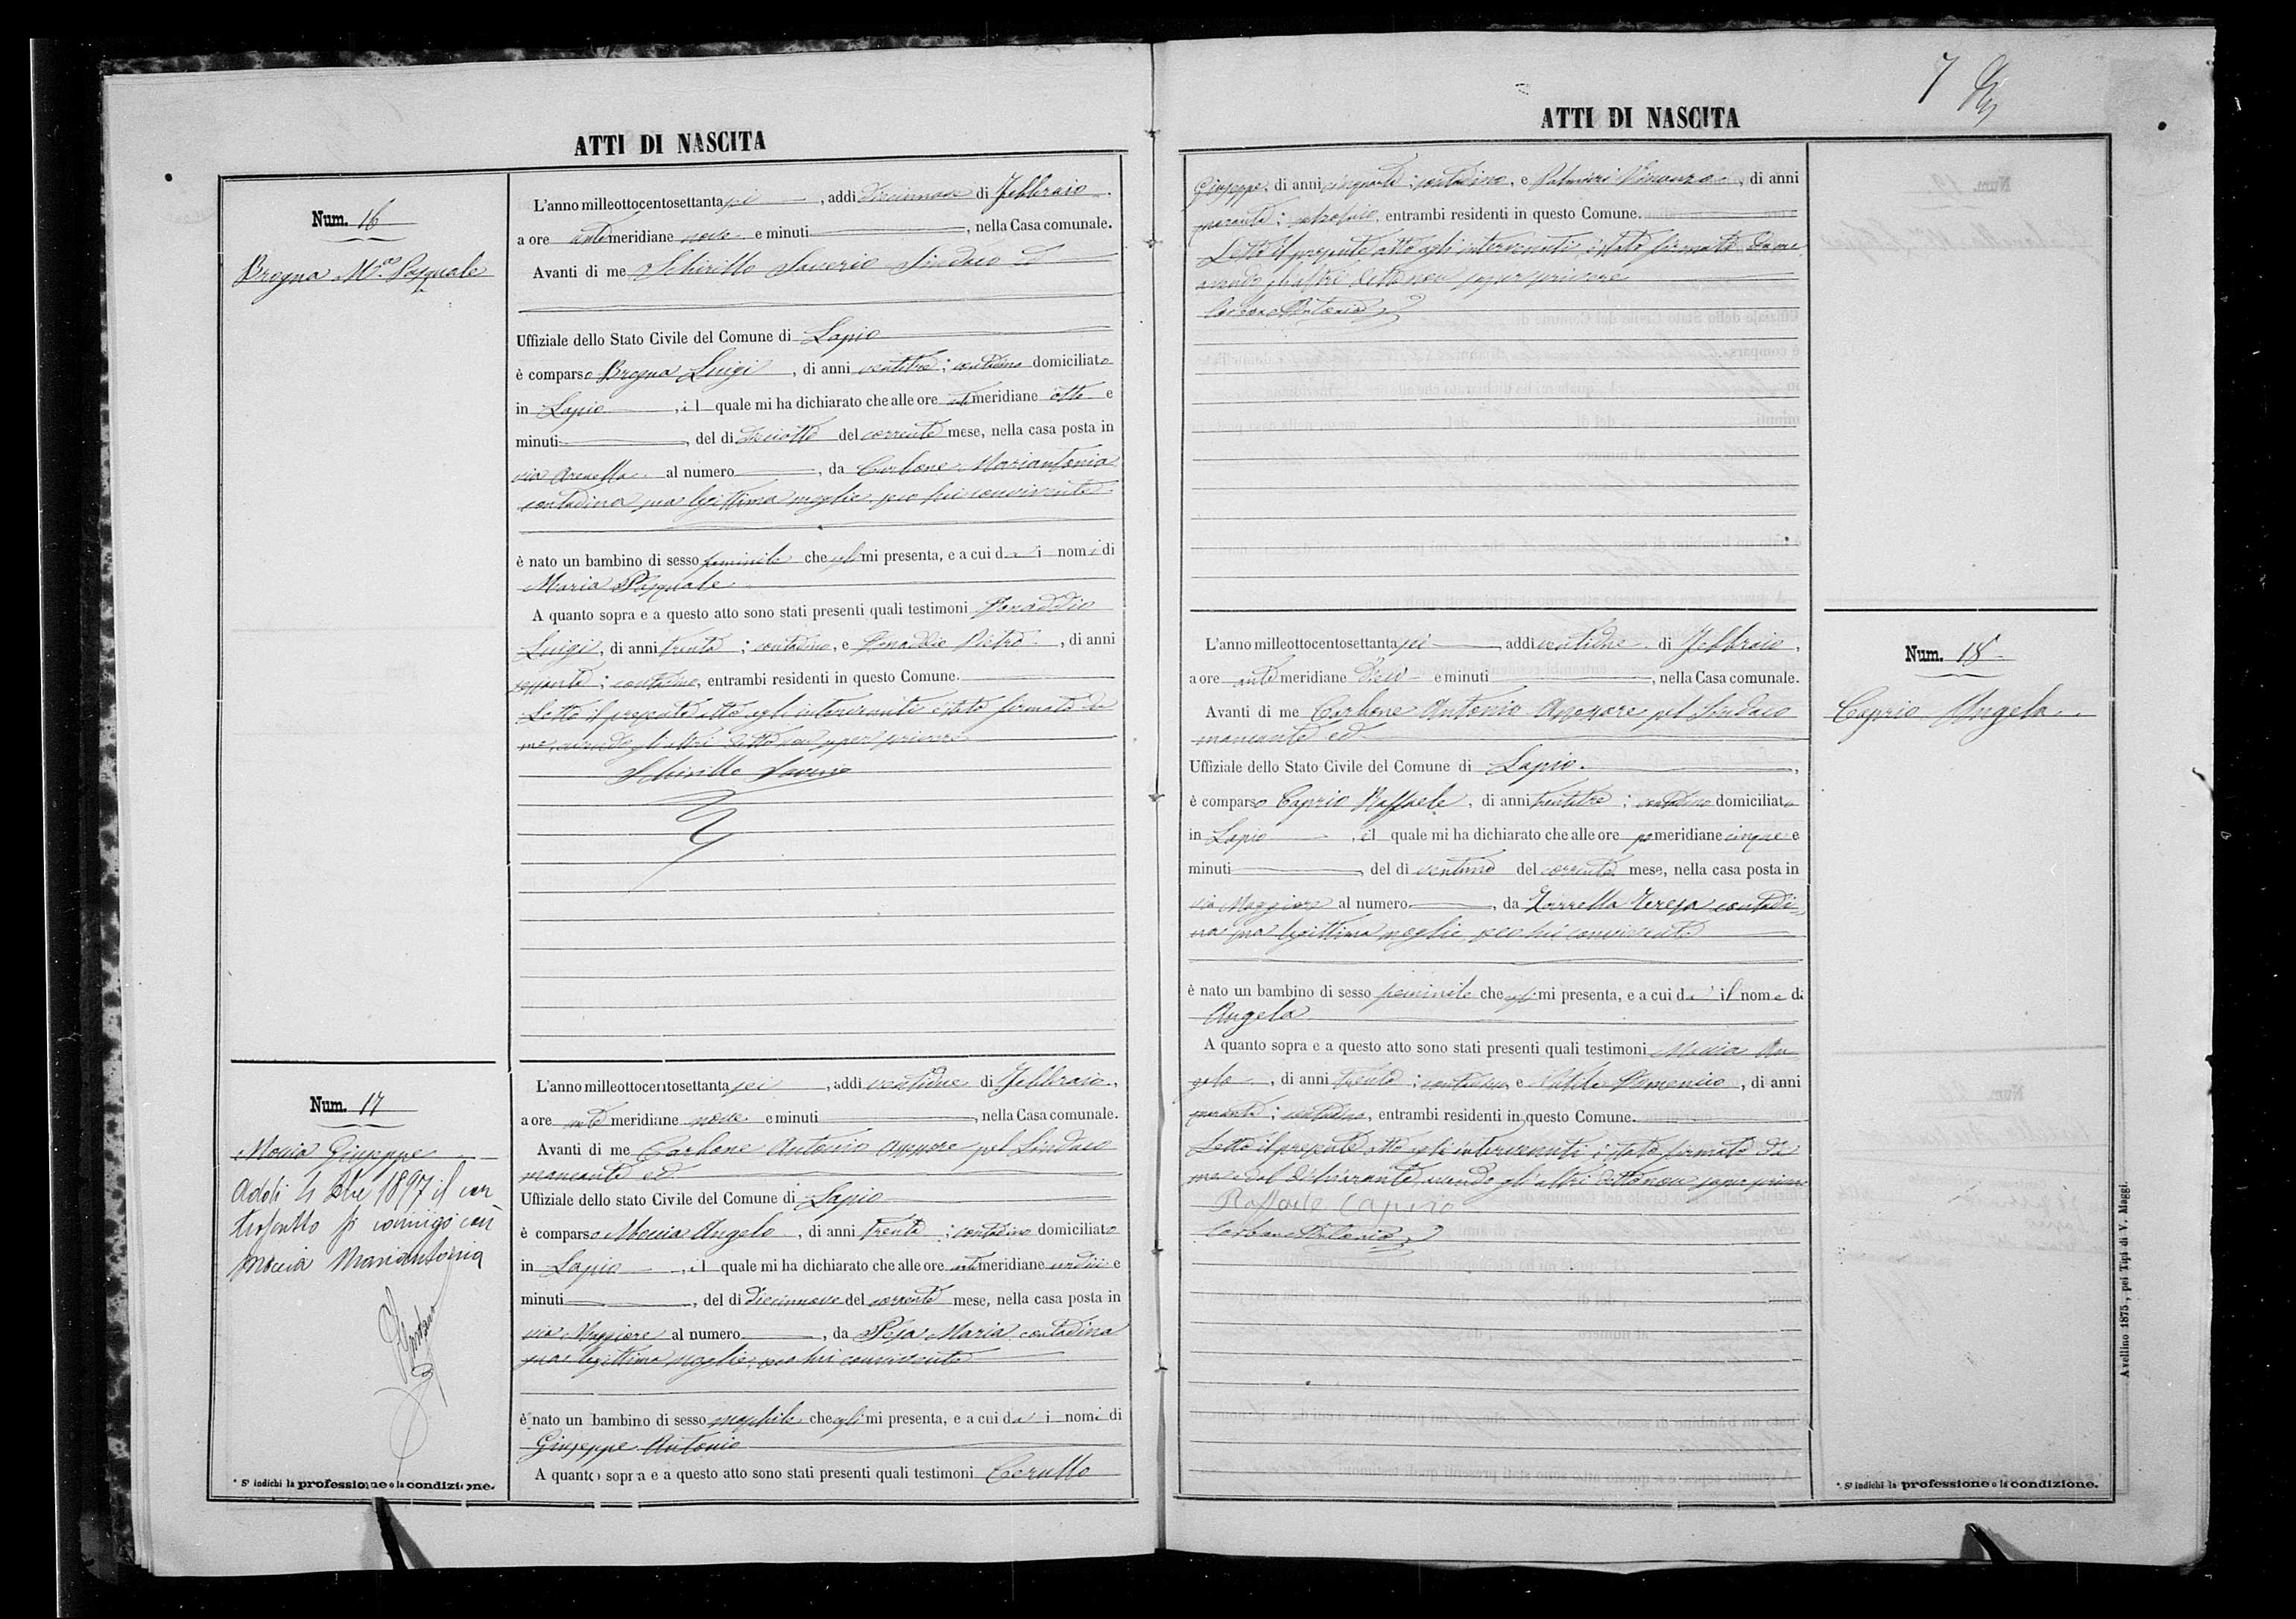 ATTI DI NASCITA
Num. 16
Brogna M.a Pasquale
L'anno milleottocentosettantasei, addi diecinnove di Febbraio
a ore antemeridiane nove e minuti, nella Casa comunale.
Avanti di me Schirillo Saverio Sindaco ed
Uffiziale dello Stato Civile del Comune di Lapio
è comparso Brogna Luigi, di anni ventitre; contadino domiciliato
in Lapio, il quale mi ha dichiarato che alle ore antmeridiane otto e
minuti, del dì dieciotto del corrente mese, nella casa posta in
via Arenella al numero, da Carbone Mariantonia
contadina sua legittima moglie, seco lui convivente
è nato un bambino di sesso feminile che egli mi presenta, e a cui da i nomi di
Maria Pasquale
A quanto sopra e a questo atto sono stati presenti quali testimoni Donaddio
Luigi, di anni trenta; contadino, e Donaddio Pietro, di anni
sessanta; contadino, entrambi residenti in questo Comune.
Letto il presente atto agli intervenuti è stato firmato da
me, avendo gli altri detto non saper scrivere
Schirillo Saverio
Num. 17
Moccia Giuseppe
Addi 4 1897 il con
trascritto si coniugò con
Moccia Mariantonia
L'anno milleottocentosettantasei, addi ventidue di Febbraio,
a ore antemeridiane nove e minuti, nella Casa comunale.
Avanti di me Carbone Antonio Assessore pel Sindaco
mancante ed
Uffiziale dello stato Civile del Comune di Lapio
è comparso Moccia Angelo, di anni trenta; contadino domiciliato
in Lapio, il quale mi ha dichiarato che alle ore antmeridiane undici e
minuti, del dì diecinnove del corrente mese, nella casa posta in
via Maggiore al numero, da Pesa Maria contadina
sua legittima moglie, seco lui convivente
è nato un bambino di sesso maschile che egli mi presenta, e a cui da i nomi di
Giuseppe Antonio
A quanto sopra e a questo atto sono stati presenti quali testimoni Cerullo
* Si indichi la professione o la condizione.
7
ATTI DI NASCITA
Giuseppe, di anni cinquanta; contadino, e Palmieri, di anni
quaranta; entrambi residenti in questo Comune.
Letto il presente atto agli intervenuti, è stato firmato da me
avendo gli altri detto non saper scrivere
Carbone Antonio
L'anno milleottocentosettantasei addi ventidue di Febbraio,
a ore antemeridiane dieci e minuti, nella Casa comunale.
Avanti di me Carbone Antonio Assessore pel Sindaco
mancante ed
Uffiziale dello Stato Civile del Comune di Lapio.
è comparso Caprio Raffaele, di anni trentatre; contadino domiciliato
in Lapio, il quale mi ha dichiarato che alle ore pomeridiane cinque e
minuti, del dì ventuno del corrente mese, nella casa posta in
via Maggiore al numero, da Zarrella Teresa contadi-
na sua legittima moglie seco lui convivente
è nato un bambino di sesso feminile che egli mi presenta, e a cui da il nome di
Angela
A quanto sopra e a questo atto sono stati presenti quali testimoni Moccia An-
gelo, di anni trenta; contadino, e Domenico, di anni
quaranta; contadino, entrambi residenti in questo Comune.
Letto il presente atto agli intervenuti è stato firmato da
me e dal dichiarante, avendo gli altri detto non saper scrivere
Raffaele Caprio
Carbone Antonio
Num. 18
Caprio Angela
* Si indichi la professione o la condizione.
Avellino 1875, pei Tipi di V. Maggi.